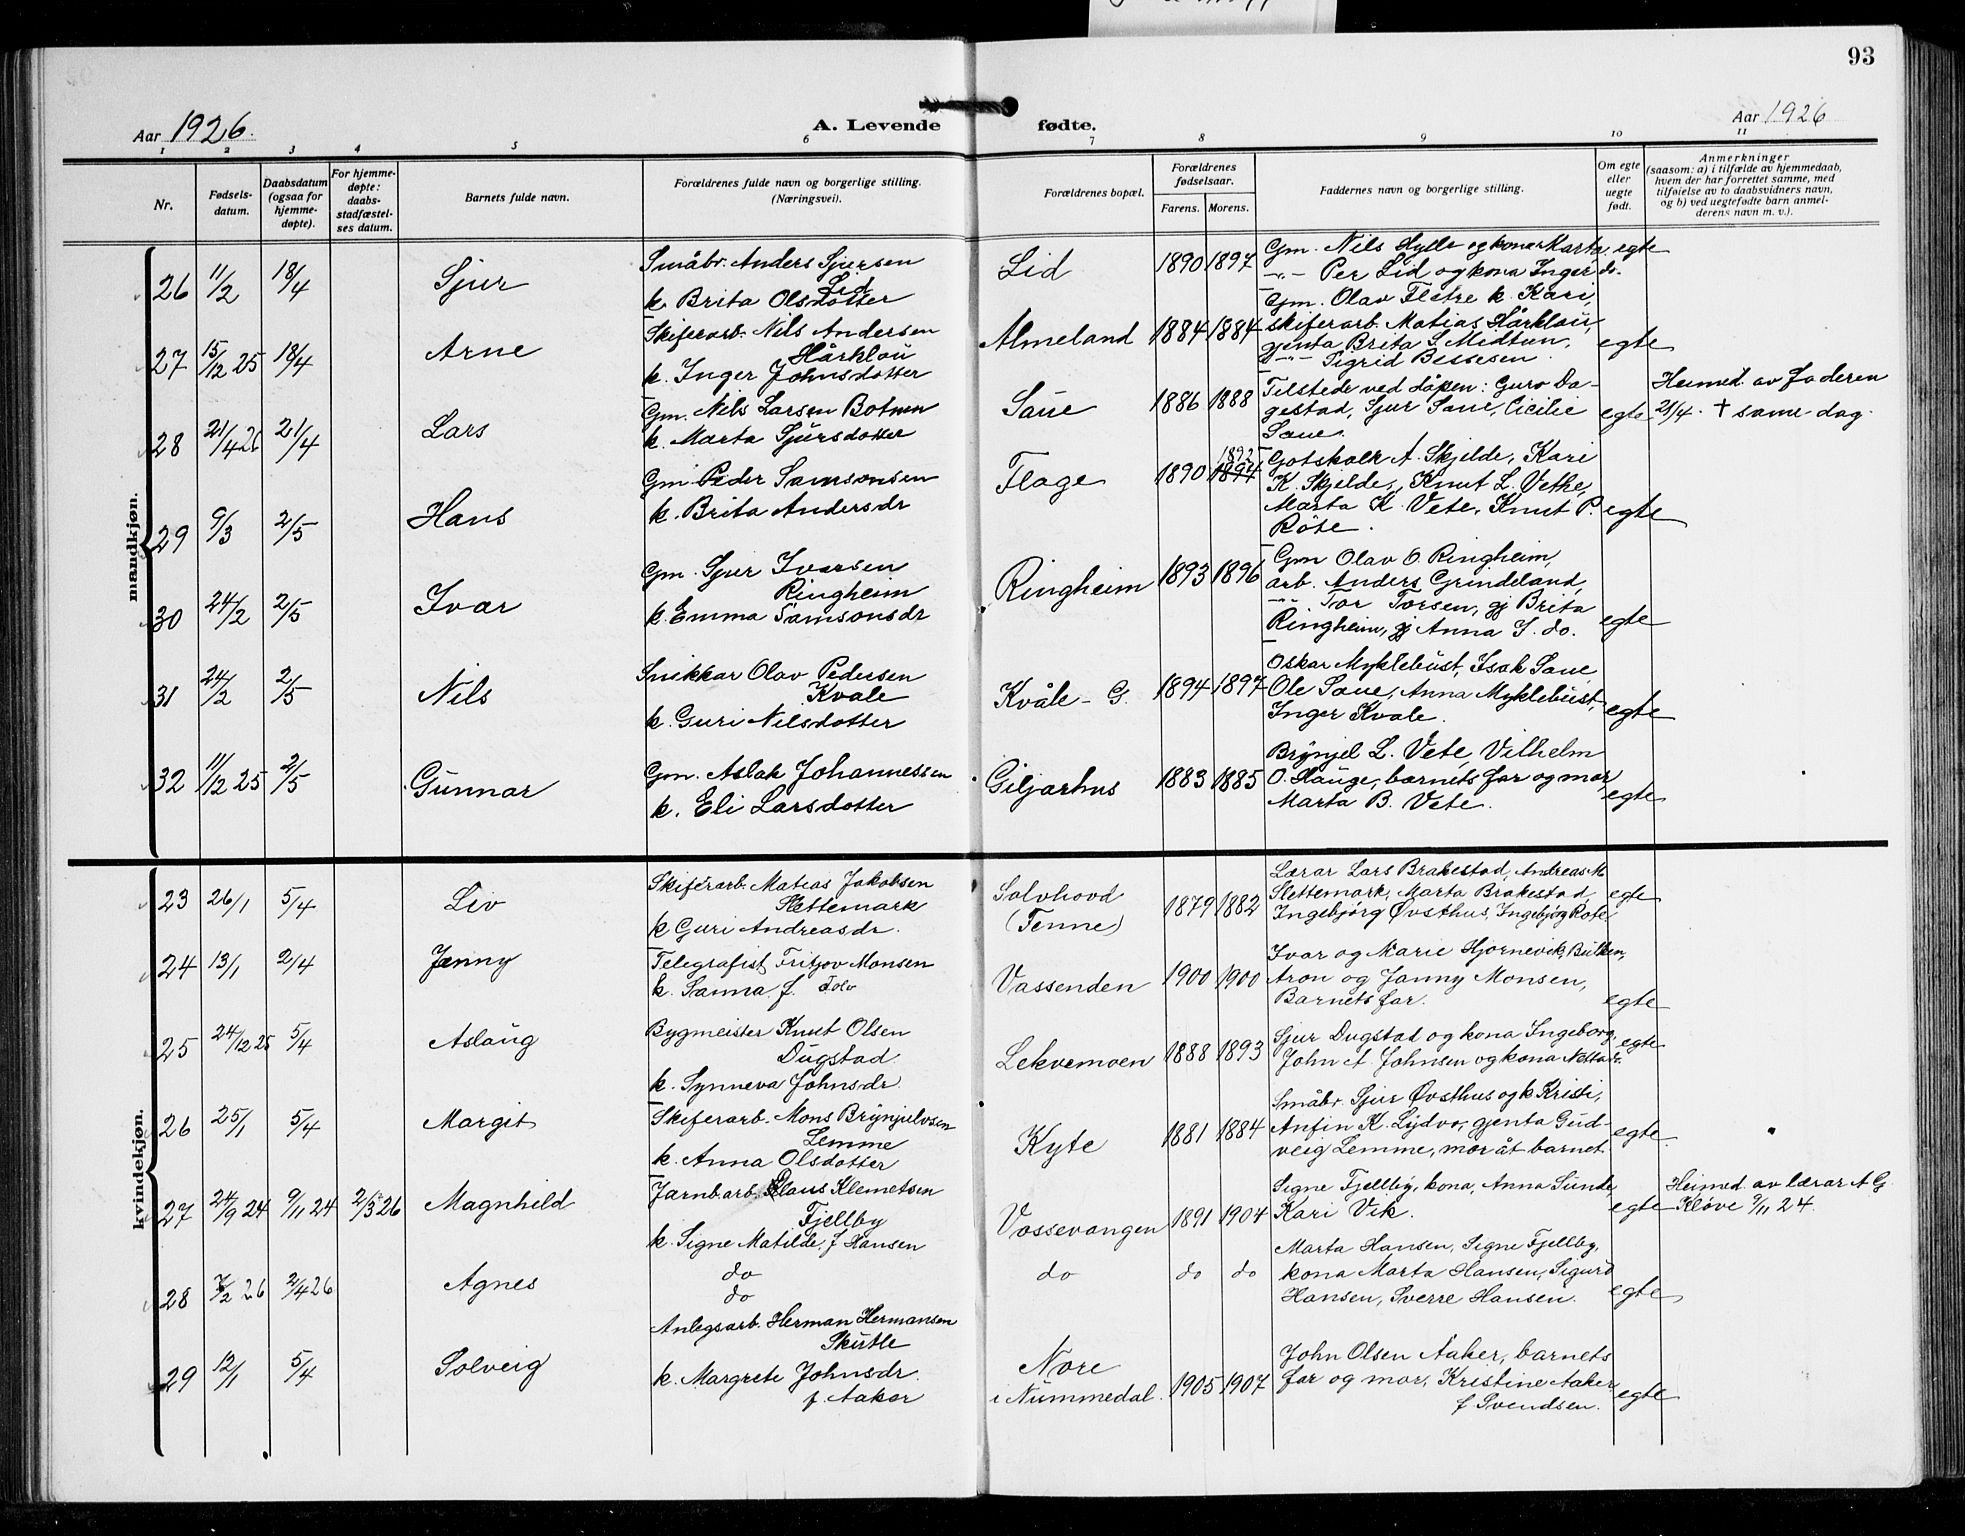 93
Aar 1926.
A. Levende fødte.
Aar 1926
1 2 3 4 5 6 7 8 9 10 11
Nr.
Fødsels-
datum.
Daabsdatum
(ogsaa for
hjemme-
døpte).
For hjemme-
døpte:
daabs-
stadfæstel-
ses datum.
Barnets fulde navn.
Forældrenes fulde navn og borgerlige stilling.
(Næringsvei).
Forældrenes bopæl.
Forældrenes
fødselsaar.
Farens. Morens.
Faddernes navn og borgerlige stilling.
Om egte
eller
uegte
født.
Anmerkninger
(saasom: a) i tilfælde av hjemmedaab,
hvem der har forrettet samme, med
tilføielse av to daabsvidners navn,
og b) ved uegtefødte barn anmel-
derens navn m. v.).
mandkjøn.
26 11/2 18/4 Sjur
Småbr. Anders Sjursen
Lid
k. Brita Olsdotter
Lid 1890 1897
Gm. Nils Hylle og kona Marta
-"- Per Lid og kona Inger do.
egte
27 15/12 25 18/4 Arne
Skiferarb. Nils Andersen
Hårklau
k. Inger Johnsdotter
Almeland 1884 1884
Gm. Olav Flatre k. Kari,
skiferarb. Matias Hårklau,
gjenta Brita S Midtun,
-"- Sigrid Bessesen.
egte
28 21/4 26 21/4 Lars
Gm. Nils Larsen Botnen
k. Marta Sjursdotter
Saue 1886 1888
Tilstede ved dåpen: Guro Da-
gestad, Sjur Saue, Cicilie
Saue.
egte
Heimed. av faderen
21/4. † same dag.
29 9/3 2/5 Hans
Gm Peder Samsonsen
k. Brita Andersdr
Flage 1890 1892 1894
Gotskalk A. Skjelde, Kari
K. Skjelde, Knut L. Vethe,
Marta K. Vete, Knut P.
Röte.
egte
30 24/2 2/5 Ivar
Gm. Sjur Ivarsen
Ringheim
k. Emma Samsonsdr
Ringheim 1893 1896
Gm Olav O. Ringheim,
arb. Anders Grindeland,
-"- Tor Torsen, gj Brita
Ringheim, gj Anna I. do.
egte
31 24/2 2/5 Nils
Snikkar Olav Pedersen
Kvale
k. Guri Nilsdotter
Kvåle - G. 1894 1897
Oskar Myklebust, Isak Saue,
Ole Saue, Anna Myklebust,
Inger Kvale.
egte
32 11/12 25 2/5 Gunnar
Gm. Aslak Johannessen
k. Eli Larsdotter
Giljarhus 1883 1885
Brynjel L. Vete, Vilhelm
O. Hauge, barnets far og mor,
Marta B. Vete.
egte
kvindekjøn.
23 26/1 5/4 Liv
Skiferarb. Matias Jakobsen
Slettemark
k Guri Andreasdr.
Solvhovd
(Tenne) 1879 1882
Lærar Lars Brakestad, Andreas M
Slettemark, Marta Brakestad,
Ingebjörg Øvsthus, Ingebjörg Rote
egte
24 13/1 2/4 Jenny
Telegrafist Fritjov Monsen
k. Sanna f.
Vassenden 1900 1900
Ivar og Marie Hjornevik, Bulken,
Aron og Janny Monsen,
Barnets far.
egte
25 24/12 25 5/4 Aslaug
Bygmeister Knut Olsen
Dugstad
k. Synneva Johnsdr.
Lekvemoen 1888 1893
Sjur Dugstad og kona Ingeborg,
John A Johnsen og kona Netta do.
egte
26 25/1 5/4 Margit
Skiferarb. Mons Brynjelvsen
Lemme
k. Anna Olsdotter
Kyte 1881 1884
Småbr. Sjur Øvsthus og k Kristi,
Anfin K. Lydvo, gjenta Gud-
veig Lemme, mor åt barnet.
egte.
27 24/9 24 9/11 24 2/3 26 Magnhild
Jarnb.arb. Klaus Klemetsen
Fjellby
k. Signe Matilde, f Hansen
Vossevangen 1891 1904
Signe Fjellby, kona, Anna Sunde,
Kari Vik.
egte
Heimed. av lærar A G
Kløve 9/11 24.
28 7/2 26 2/4 26 Agnes
do
do
do do do
Marta Hansen, Signe Fjellby,
kona Marta Hansen, Sigurd
Hansen, Sverre Hansen.
egte
29 12/1 5/4 Solveig
Anlegsarb. Herman Hermansen
Skutle
k. Margrete Johnsdr.
f. Aaker
Nore
i Nummedal. 1905 1907
John Olsen Aaker, barnets
far og mor, Kristine Aaker
f. Svendsen.
egte